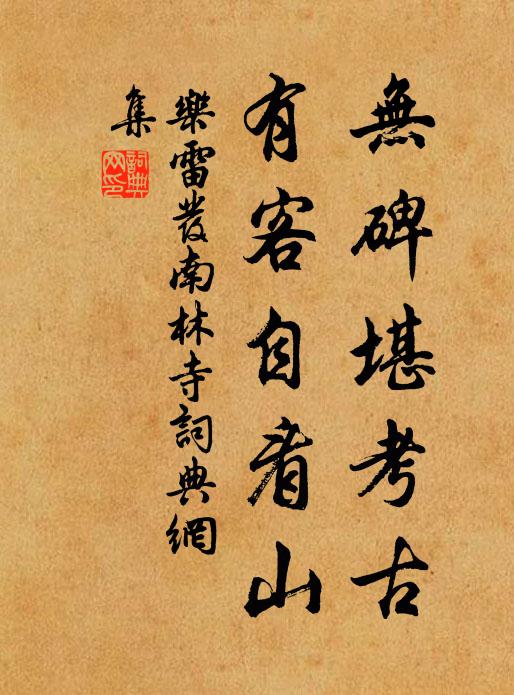 無碑堪考古
有客自看山
樂雷發南林寺詞典網
集
詞典网印